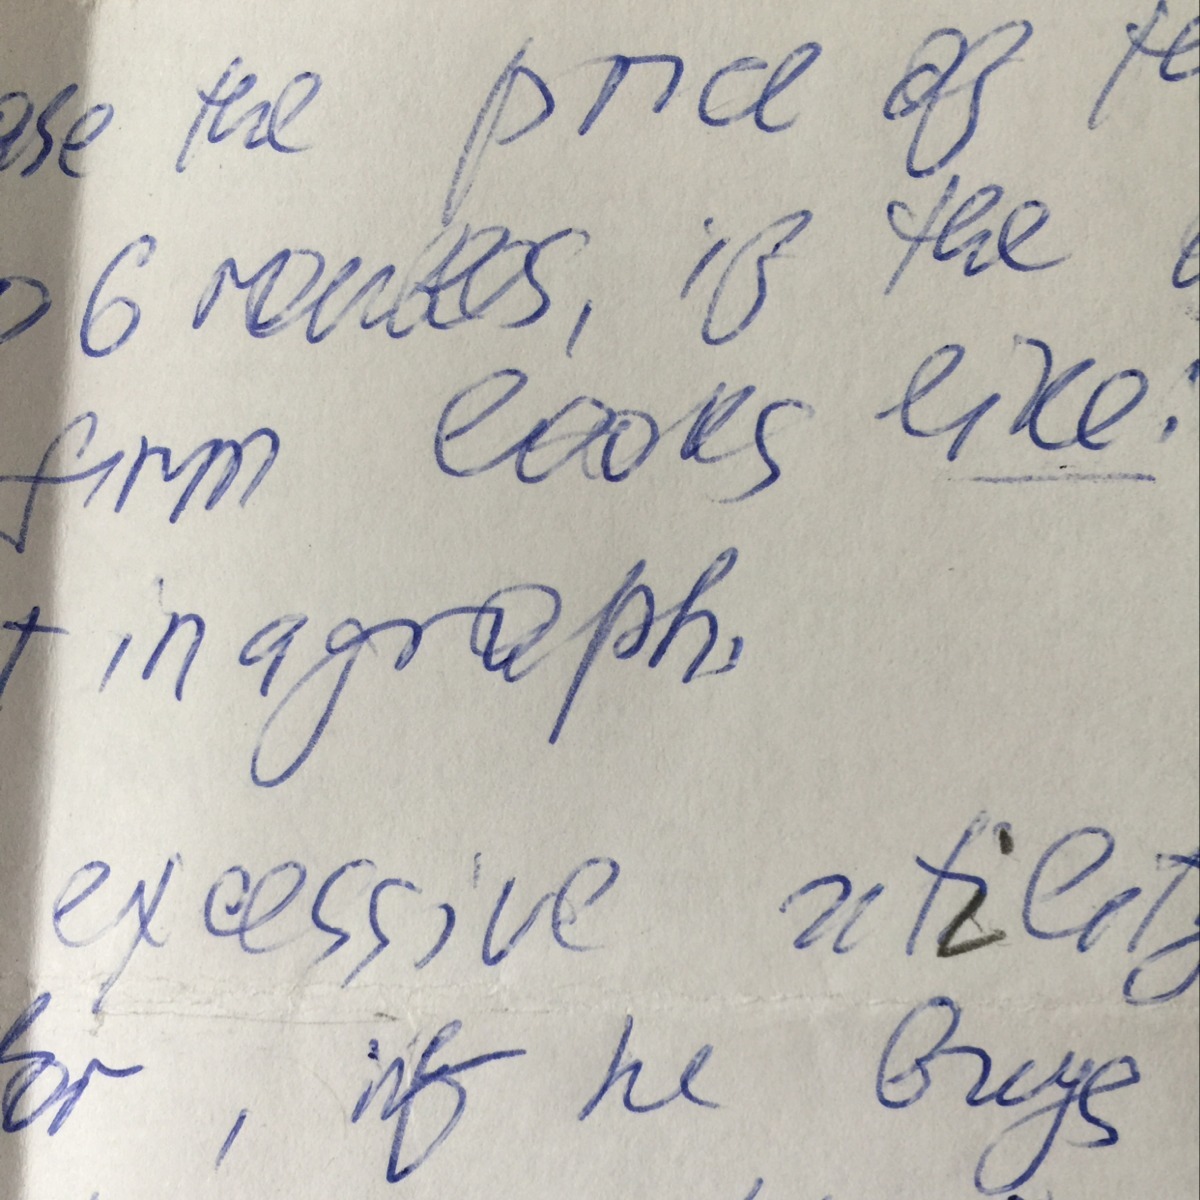 the price of
6 roubles, if the
firm looks like:
in a graph.
excessive utility
for, if he buys